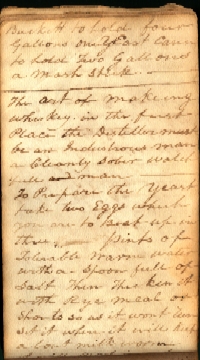 Buckitt to hold four
Gallons one yeast Cann
to hold Two Gallons
a Mash Stick
The art of making
whiskey in the first
Place the Distiller must
be an Industrious man
a Cleanly Sober watch
full man
To Prepare the yeast
take two Eggs which
you are to Beat up in
three pints of
Tolerable warm water
with a Spoon full of
Salt Then Thicken it
with Rye meal or
Shorts so as it wont
set it where it will keep
a bout milk warm